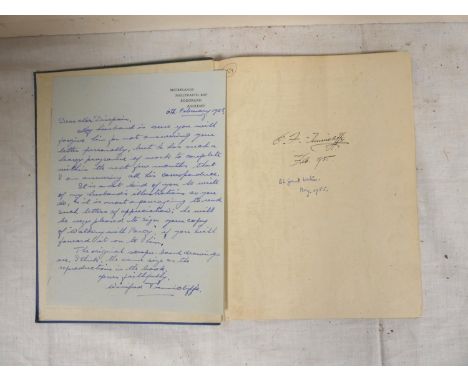 MALLTRAETH BAY
BODORGAN
ANGLESEY
6th February 1955
Dear
My husband is sure you will
forgive him for not answering your
letter personally, but he has such a
heavy programme of work to complete
within the next few months, that
I am answering all his correspondence.
It is most kind of you to write
of my husband's illustrations as you
do, & it is most encouraging to read
such letters of appreciation; he will
be very pleased to sign your copy
of "Walking with Fancy", if you will
forward it on to him.
The original scraper board drawings
are, I think, the same size as the
reproductions in the book.
Yours faithfully,
Winifred Tunnicliffe.
C. F. Tunnicliffe
Feb. 1955